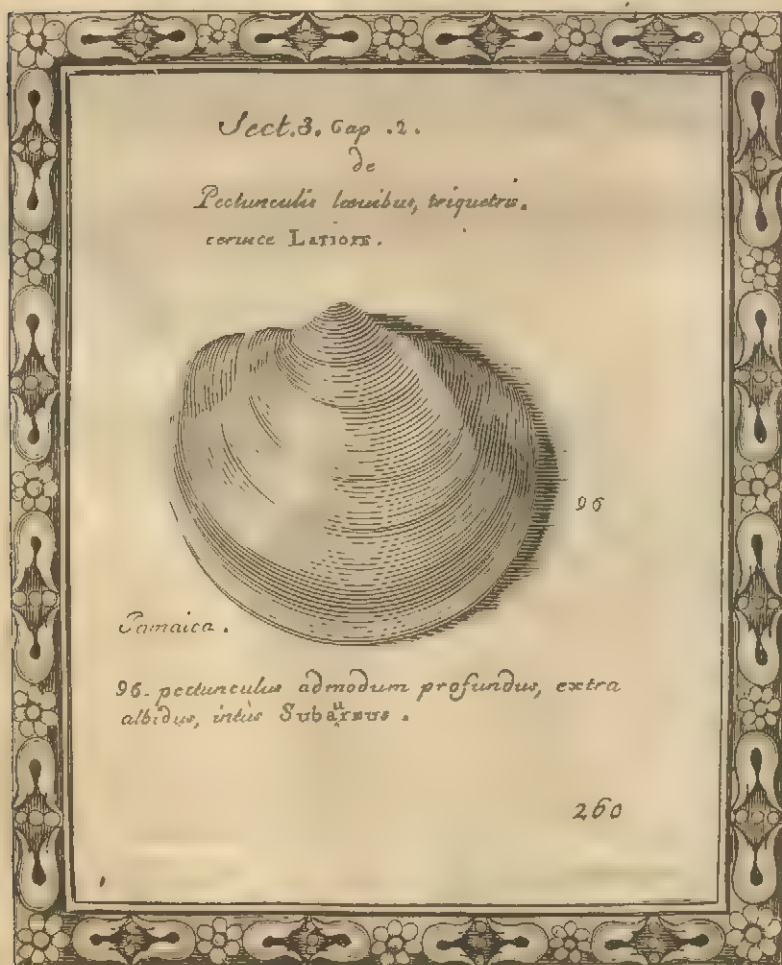 Sect.3. Cap .2.
de
Pectunculis lævibus, triquetris.
cervice LATIORE.
96
Jamaica.
96. pectunculus admodum profundus, extra
albidus, intùs Subaureus.
260